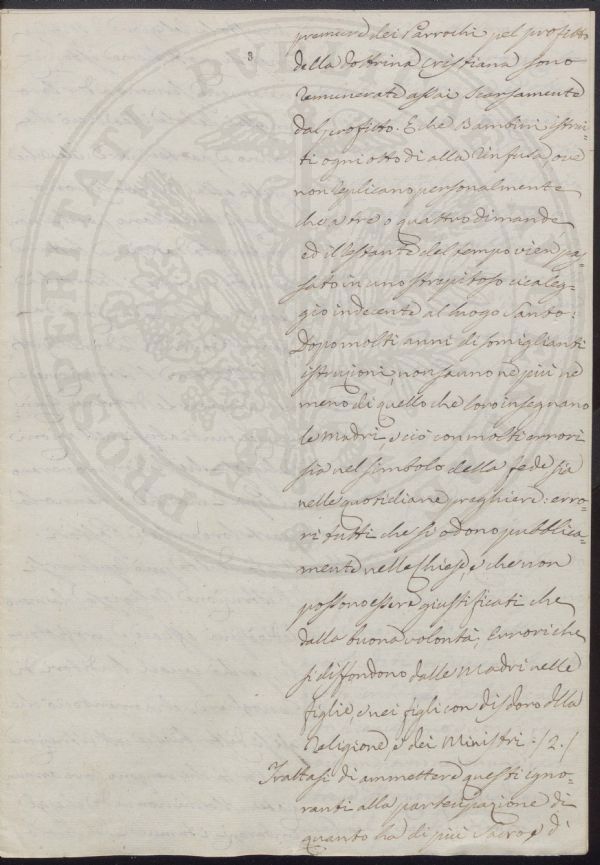 3
PROSPERITATI PVBLICAE
premure dei Parrochi pel profitto
della Dottrina Cristiana sono
remunerate assai scarsamente
dal profitto. E che Bambini istrui-
ti ogni otto dì alla rinfusa, ove
non replicano personalmente
che a tre o quattro dimande
ed il restante del tempo vien pas-
sato in uno strepitoso cicaleg-
gio indecente al luogo Santo:
Dopo molti anni di somiglianti
istruzioni, non sanno nè più nè
meno di quello che loro insegnano
le Madri, e ciò con molti errori
sia nel simbolo della fede sia
nelle quotidiane preghiere: erro-
ri tutti che si odono pubblica-
mente nelle Chiese, e che non
possono essere giustificati che
dalla buona volontà; Errori che
si diffondono dalle Madri nelle
figlie, e nei figli con disdoro della
Religione, e dei Ministri. /2./
Trattasi di ammettere questi igno-
ranti alla partecipazione di
quanto ha di più Sacro, e di